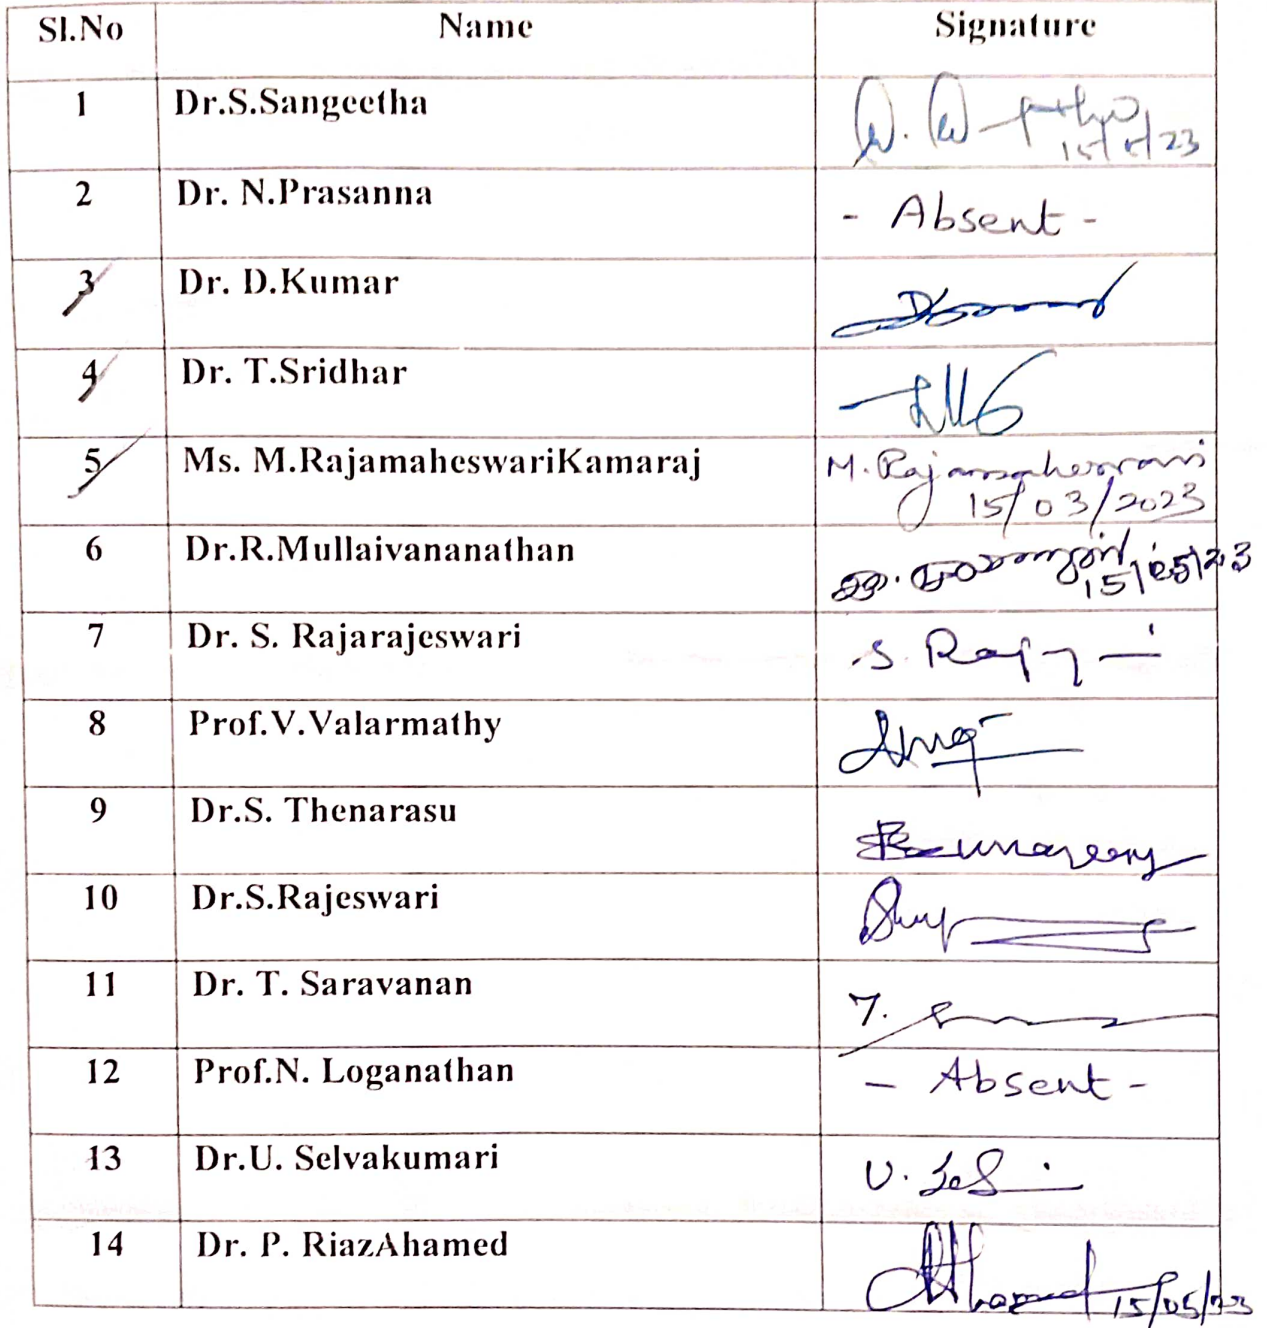 Sl.No Name Signature
1 Dr.S.Sangeetha
15/5/23
2 Dr. N.Prasanna - Absent -
3 Dr. D.Kumar
4 Dr. T.Sridhar
5 Ms. M.RajamaheswariKamaraj M. Rajamaheswari
15/03/2023
6 Dr.R.Mullaivananathan
15/05/23
7 Dr. S. Rajarajeswari S.
8 Prof.V.Valarmathy
9 Dr.S. Thenarasu
10 Dr.S.Rajeswari
11 Dr. T. Saravanan T.
12 Prof.N. Loganathan - Absent -
13 Dr.U. Selvakumari U.
14 Dr. P. RiazAhamed
15/05/23